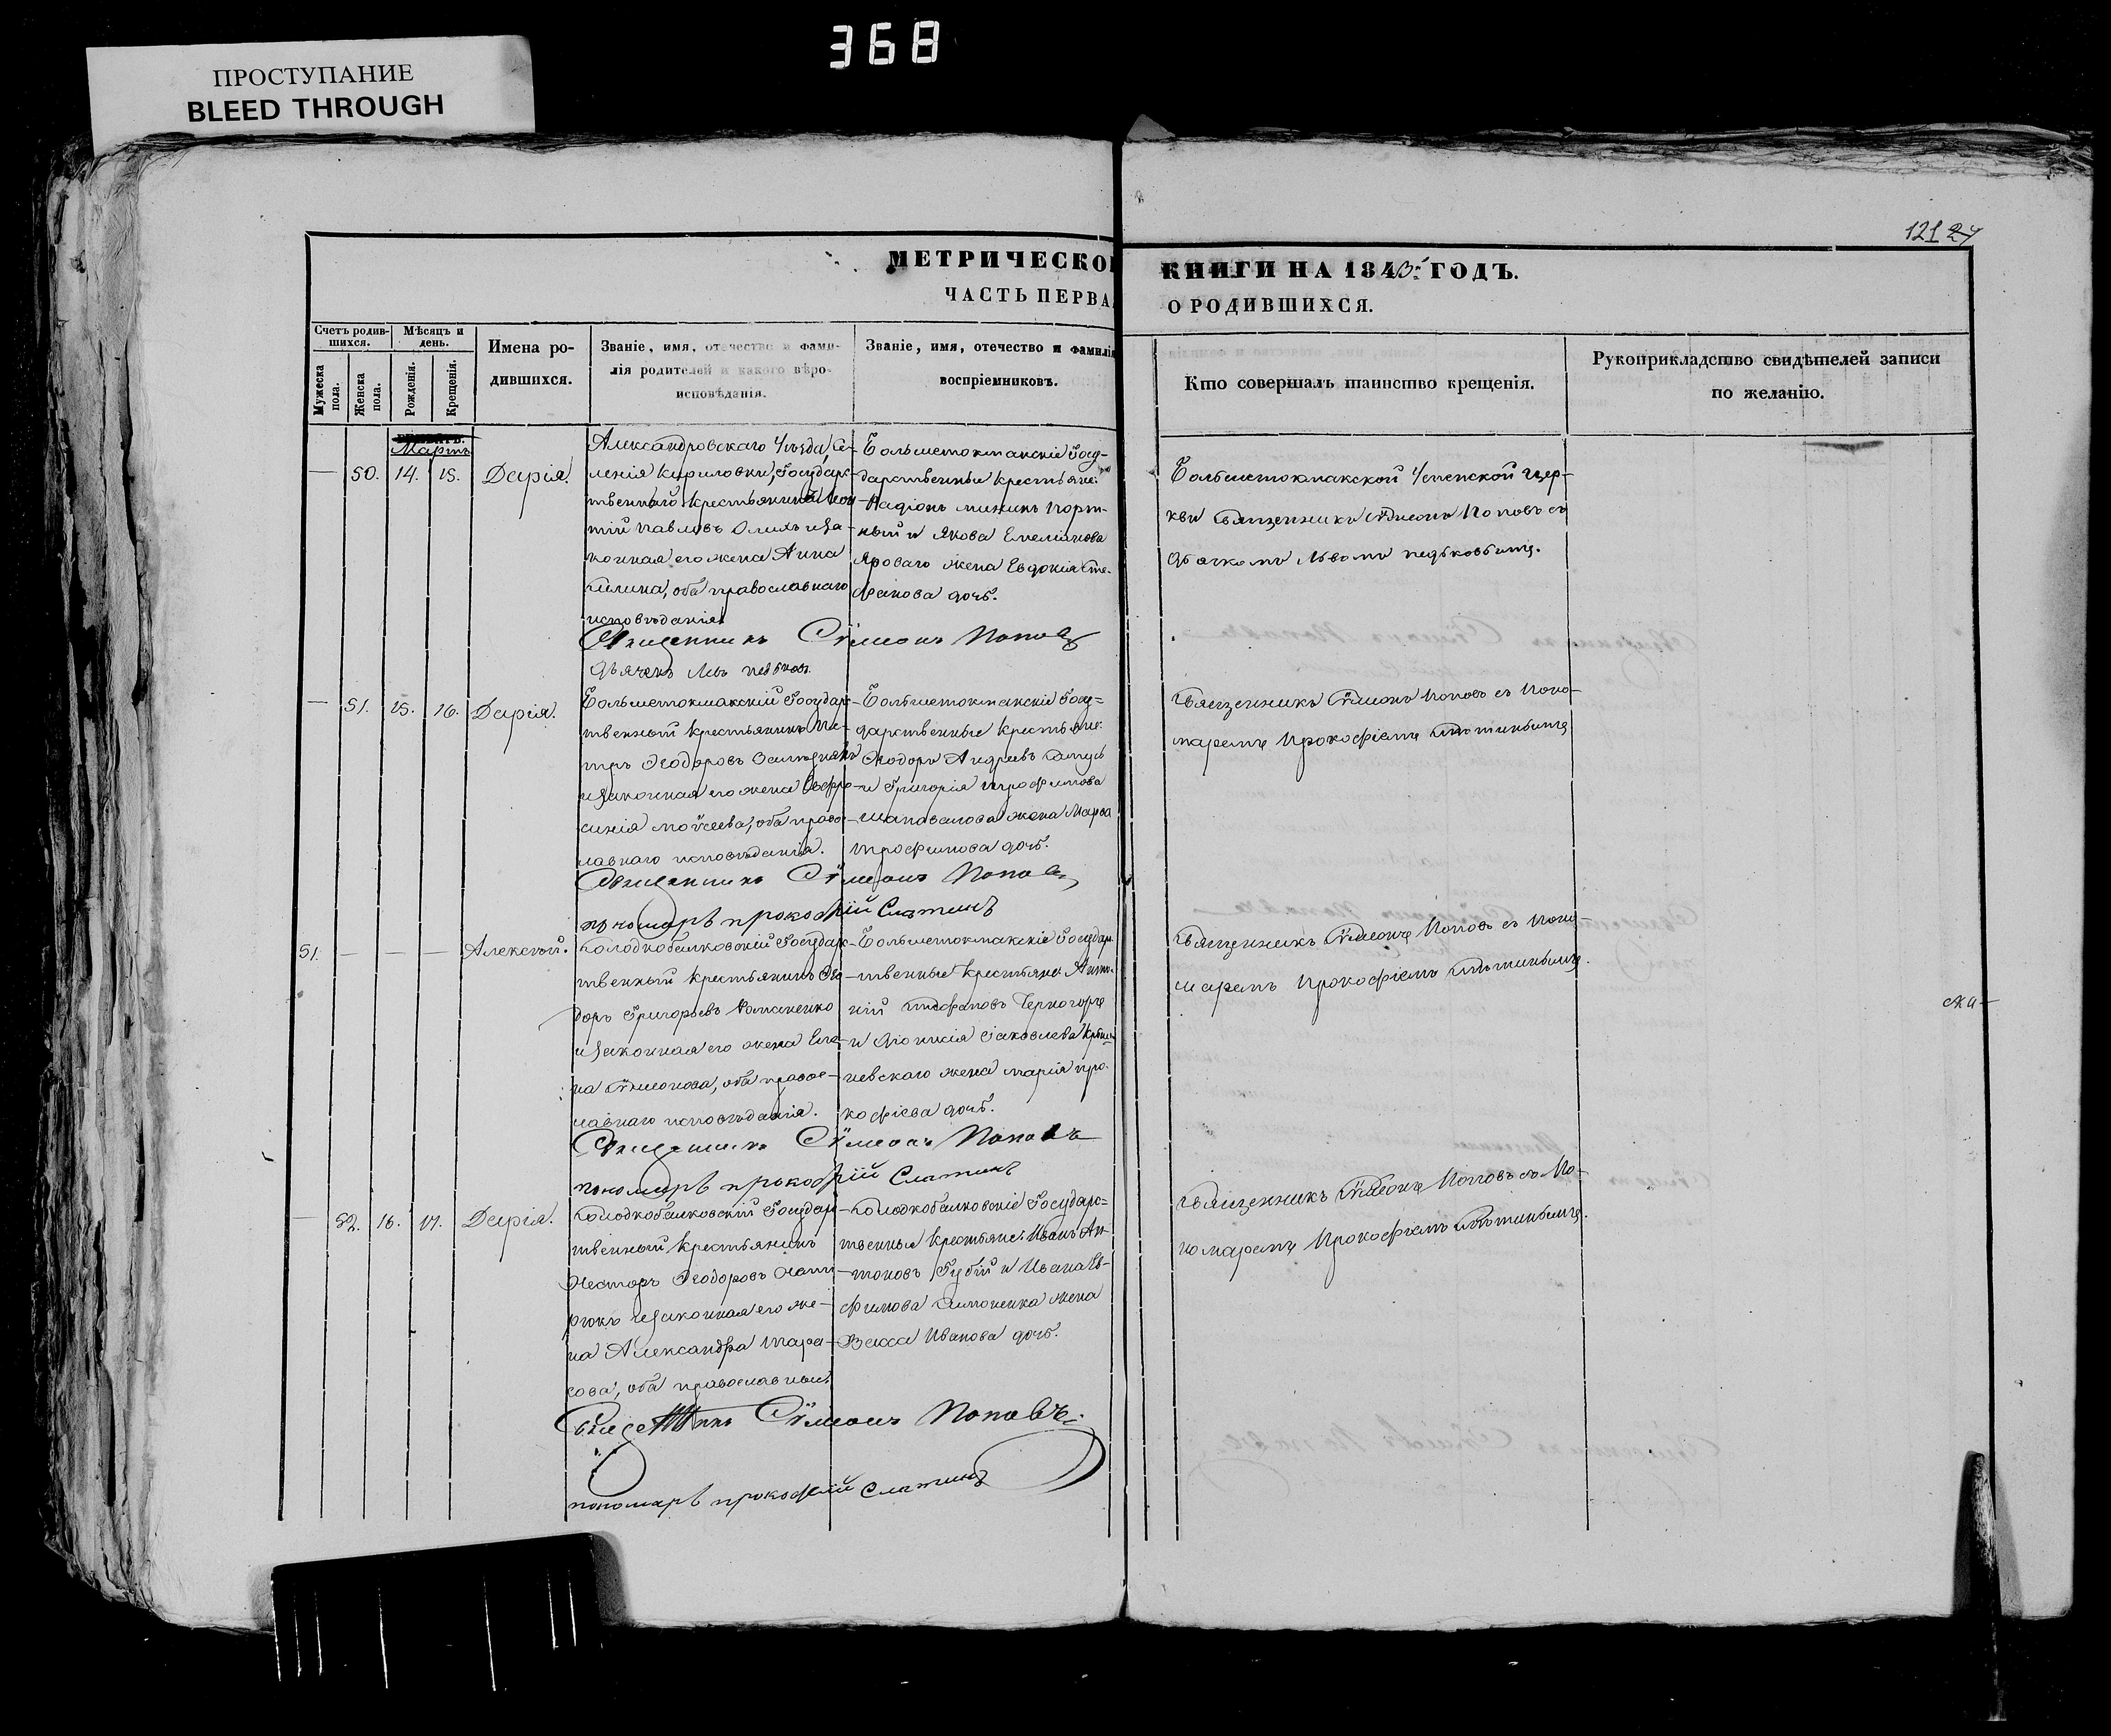 368
ПРОСТУПАНИЕ
BLEED THROUGH
121 24
МЕТРИЧЕСКО
КНИГИ НА 1843: ГОДЪ.
ЧАСТЬ ПЕРВА
О РОДИВШИХСЯ.
Счетъ родив-
шихся.
Мѣсяцъ и
день.
Мужеска
пола.
Женска
пола.
Рожденія.
Крещенія.
Имена ро-
дившихся.
Званіе, имя, отечество и фами-
лія родителей и какого вѣро-
исповѣданія.
Званіе, имя, отечество и фамилія
воспріемниковъ.
Кто совершалъ таинство крещенія.
Рукоприкладство свидѣтелей записи
по желанію.
Мартъ
— 50. 14. 15. Дарія.
Александровскаго Уѣзда, Се-
ленія Кириловки, Государс-
твеннаго крестьянина
Павловъ и за-
конная его жена Анна
оба православнаго
исповѣданія.
Священникъ Сѵмеонъ Поповъ
Дьячекъ Левъ
Большетокмакскіе Госу-
дарственные крестьяне:
Порт-
ный и Якова Емельянова
Яроваго жена Евдокія Сте-
фанова дочь.
Большетокмакской Успенской Цер-
кви Священникъ Сѵмеонъ Поповъ съ
Дьячкомъ Львомъ
— 51. 15. 16. Дарія.
Большетокмакскій Государс-
твенный крестьянинъ Пе-
тръ Ѳеодоровъ
и законная его жена Евфро-
синія Моѵсеева, оба правос-
лавнаго исповѣданія.
Священникъ Сѵмеонъ Поповъ
пономарь прокофій Слатинъ
Большетокмакскіе Госу-
дарственные крестьяне:
Ѳеодоръ Андреевъ
и Григорія Трофимова
Шаповалова жена Марѳа
Трофимова дочь.
Священникъ Сѵмеонъ Поповъ съ Поно-
маремъ Прокофіемъ Слатинымъ
51. — — — Алексѣй.
Колодкобалковскій Государс-
твенный крестьянинъ Ѳео-
доръ Григорьевъ Романенко
и законная его жена Еле-
на Сѵмеонова, оба правос-
лавнаго исповѣданія.
Священникъ Сѵмеонъ Поповъ
пономарь прокофій Слатинъ
Большетокмакскіе Государс-
твенные крестьяне: Анто-
ній Стефановъ Черногоръ
и Діонисія Іаковлева
невскаго жена Марія Про-
кофіева дочь.
Священникъ Сѵмеонъ Поповъ съ Поно-
маремъ Прокофіемъ Слатинымъ.
— 52. 16. 17. Дарія.
Колодкобалковскій Государс-
твенный крестьянинъ
Несторъ Ѳеодоровъ
и законная его же-
на Александра Тара-
сова, оба православные.
Священникъ Сѵмеонъ Поповъ
пономарь прокофій Слатинъ
Колодкобалковскіе Государс-
твенные крестьяне: Иванъ Ан-
тоновъ Губій и Ивана Ев-
фимова Симоненка жена
Васса Иванова дочь.
Священникъ Сѵмеонъ Поповъ съ По-
номаремъ Прокофіемъ Слатинымъ.